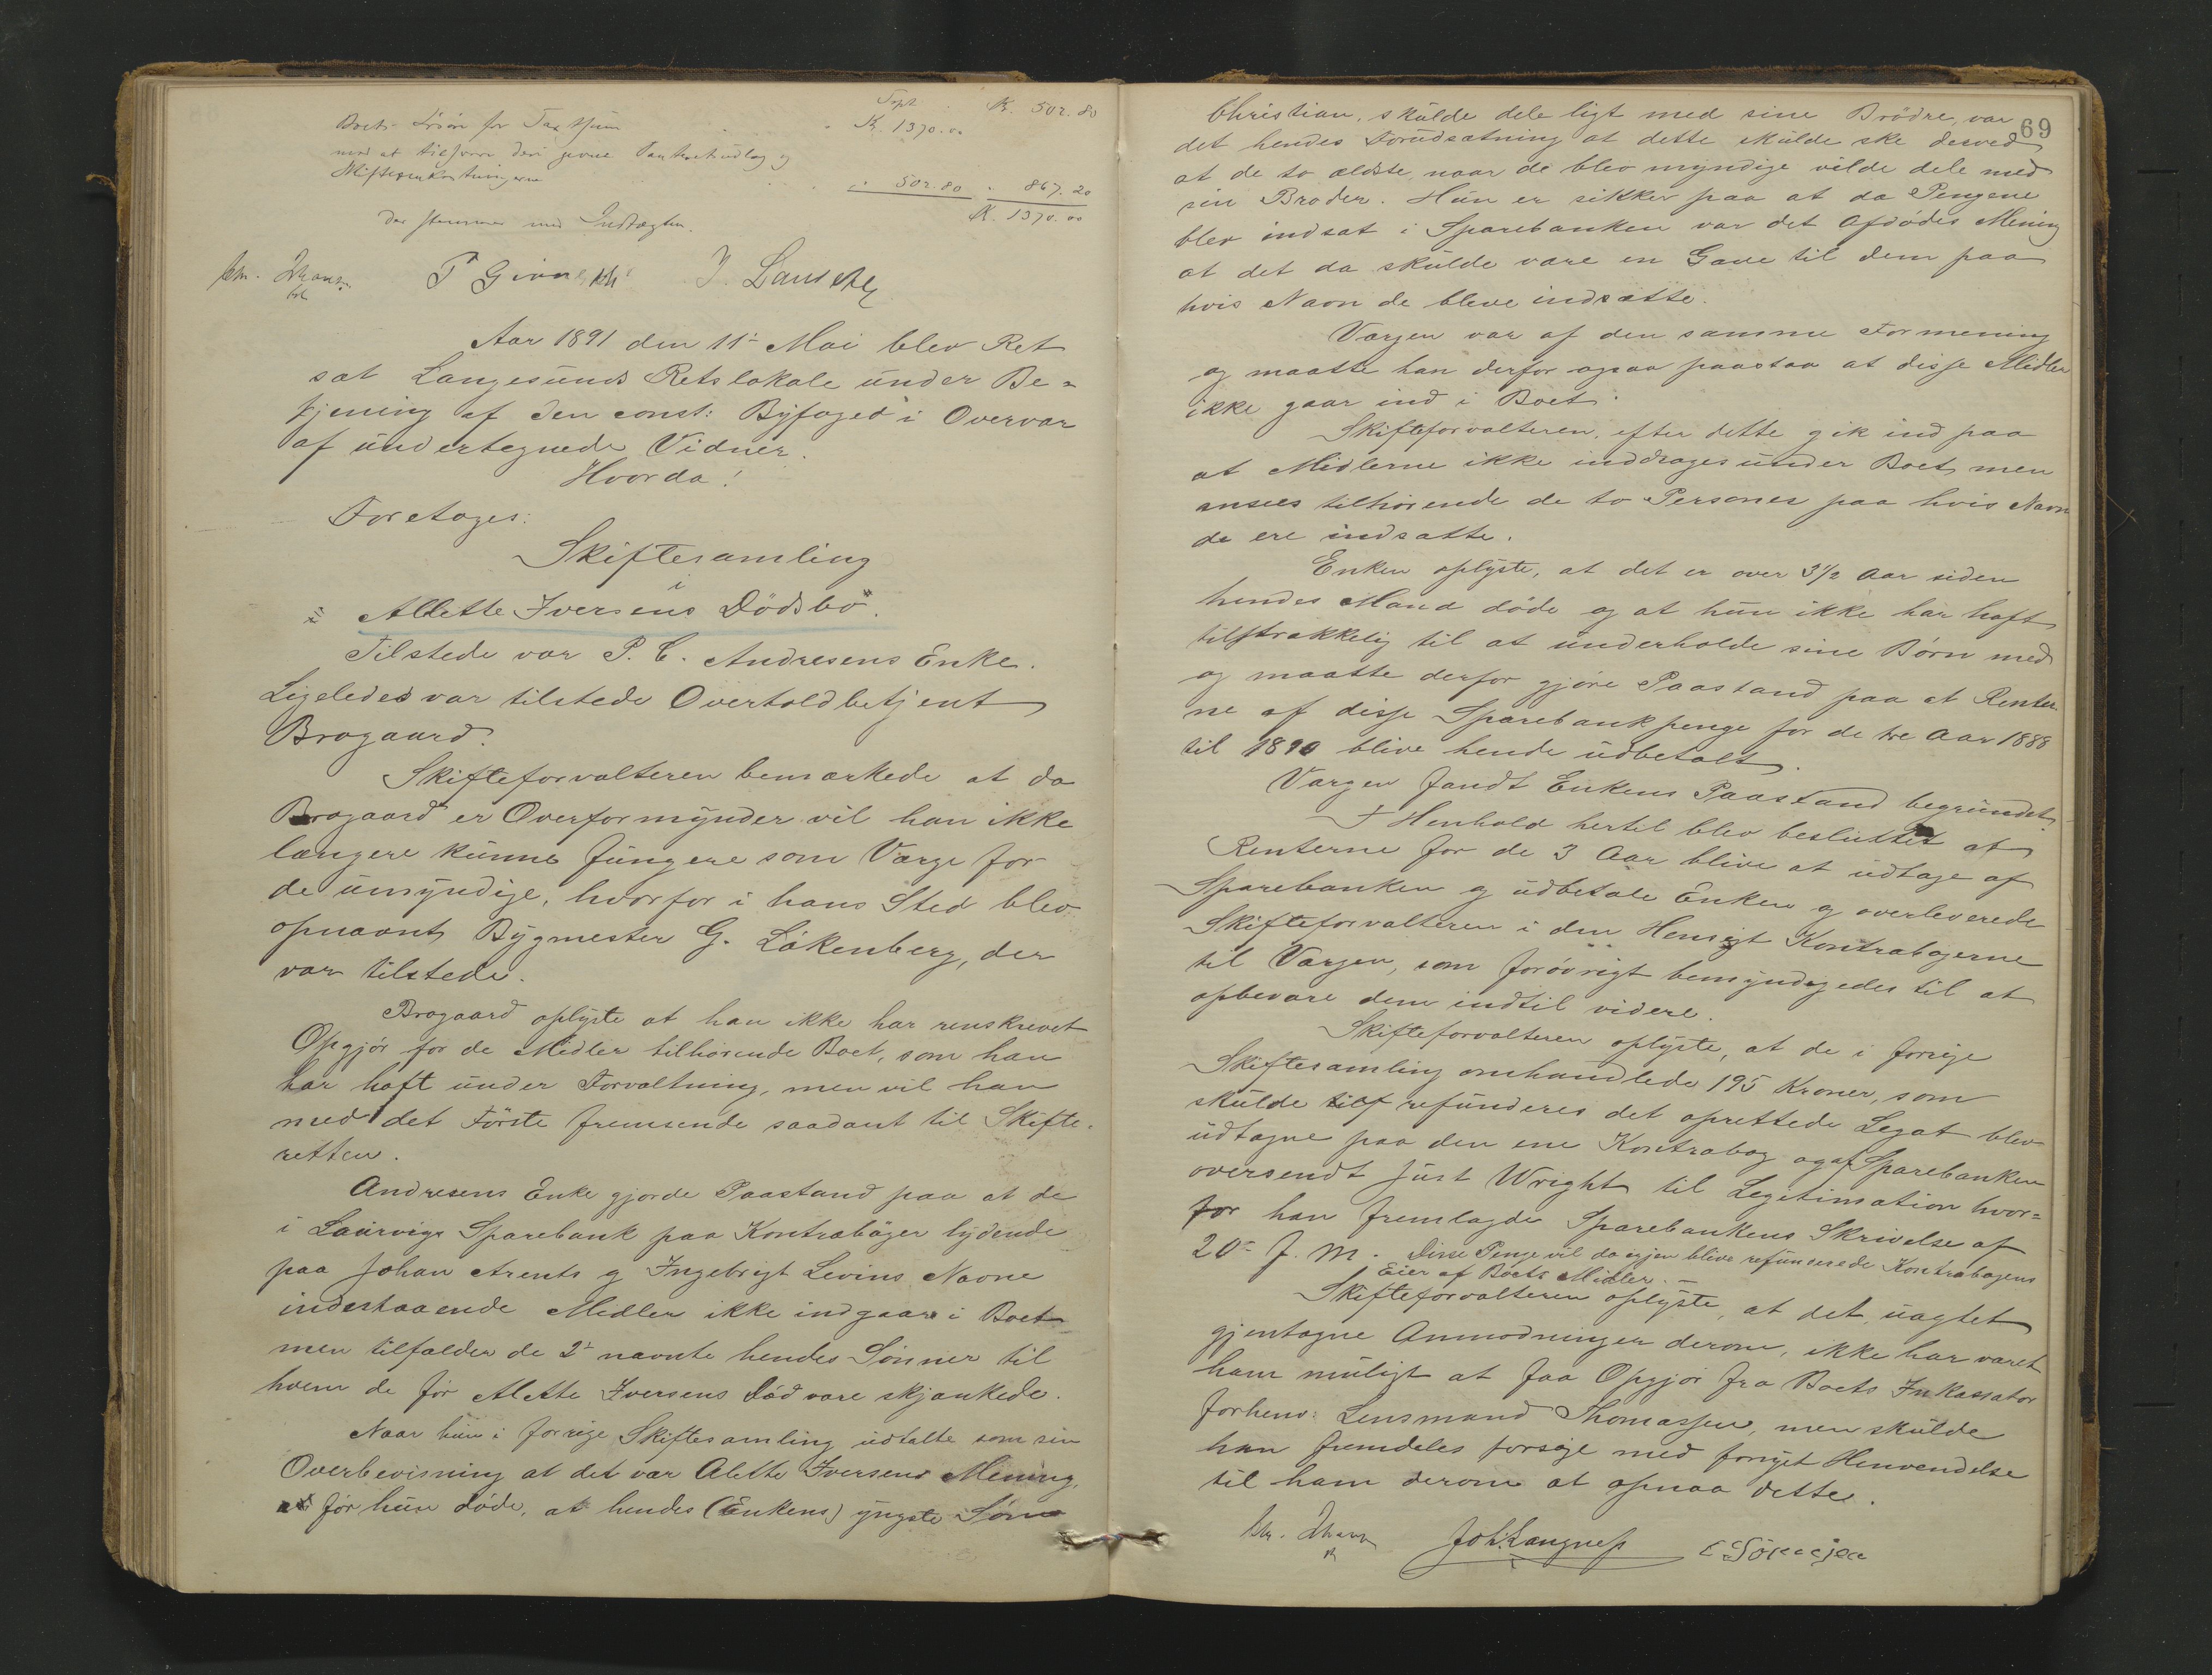 Trpt. K. 502.80
Boets Løsøre for Taxtsum K. 1370.00
med at tilsvare deri Panteudlæg og
Skifteomkostningerne 502.80 - 867.20
K. 1370.00
der stemmer med Indtægten.
Chr. J. Lausen
Aar 1891 den 11te Mai blev Ret
sat Langesunds Retslokale under Be=
tjening af den const: Byfoged i Overvær
af undertegnede Vidner.
Hvorda!
Foretoges:
Skiftesamling
i
Alette Iversens Dødsbo.
Tilstede var P. C. Andresens Enke.
Ligeledes var tilstede Overtoldbetjent
Brogaard.
Skifteforvalteren bemærkede at da
Brogaard er Overformynder vil han ikke
længere kunne fungere som Værge for
de umyndige, hvorfor i hans Sted blev
opnævnt Bygmester G. Løkenberg, der
var tilstede.
Brogaard oplyste at han ikke har renskrevet
Opgjør for de Midler tilhørende Boet, som han
har haft under Forvaltning, men vil han
med det Første fremsende saadant til Skifte-
retten.
Andresens Enke gjorde Paastand paa at de
i Laurvigs Sparebank paa Kontrabøger lydende
paa Johan Arents og Ingebrigt Levins Navne
indestaaende Midler ikke indgaar i Boet
men tilfalder de 2de nævnte hendes Sønner til
hvem de før Alette Iversens Død vare skjænkede.
Naar hun i forrige Skiftesamling udtalte som sin
Overbevisning at det var Alette Iversens Mening,
før hun døde, at hendes (Enkens) yngste Søn
69
Christian, skulde dele ligt med sine Brødre, var
det hendes Forudsætning at dette skulde ske derved
at de to ældste, naar de blev myndige vilde dele med
sin Broder. Hun er sikker paa at da Pengene
blev indsat i Sparebanken var det Afdødes Mening
at det da skulde være en Gave til dem paa
hvis Navn de bleve indsatte.
Værgen var af den samme Formening
og maatte han derfor ogsaa paastaa at disse Midler
ikke gaar ind i Boet.
Skifteforvalteren, efter dette gik ind paa
at Midlerne ikke inddrages under Boet men
ansees tilhørende de to Personer paa hvis Navn
de ere indsatte.
Enken oplyste, at det er over 3 1/2 Aar siden
hendes Mand døde og at hun ikke har haft
tilstrækkelig til at underholde sine Børn med
og maatte derfor gjøre Paastand paa at Renter
ne af disse Sparebankpenge for de tre Aar 1888
til 1890 blive hende udbetalt.
Værgen fandt Enkens Paastand begrundet.
I Henhold hertil blev besluttet at
Renterne for de 3 Aar blive at udtage af
Sparebanken og udbetale Enken og overleverede
Skifteforvalteren i den Hensigt Kontrabøgerne
til Værgen, som forøvrigt bemyndigedes til at
opbevare dem indtil videre.
Skifteforvalteren oplyste, at de i forrige
Skiftesamling omhandlede 195 Kroner, som
skulde refunderes det oprettede Legat blev
udtagne paa den ene Kontrabog og af Sparebanken
oversendt Just Wright til Legitimation hvor=
for han fremlagde Sparebankens Skrivelse af
20de f. M. Disse Penge vil da igjen blive refunderede Kontrabogens
Eier af Boets Midler. -
Skifteforvalteren oplyste, at det, uagtet
gjentagne Anmodninger derom, ikke har været
ham muligt at faa Opgjør fra Boets Inkassator
forhenv: Lensmand Thomassen, men skulde
han fremdeles forsøge med fornyet Henvendelse
til ham derom at opnaa dette.
Chr. Joh. Langnes C Sørensen